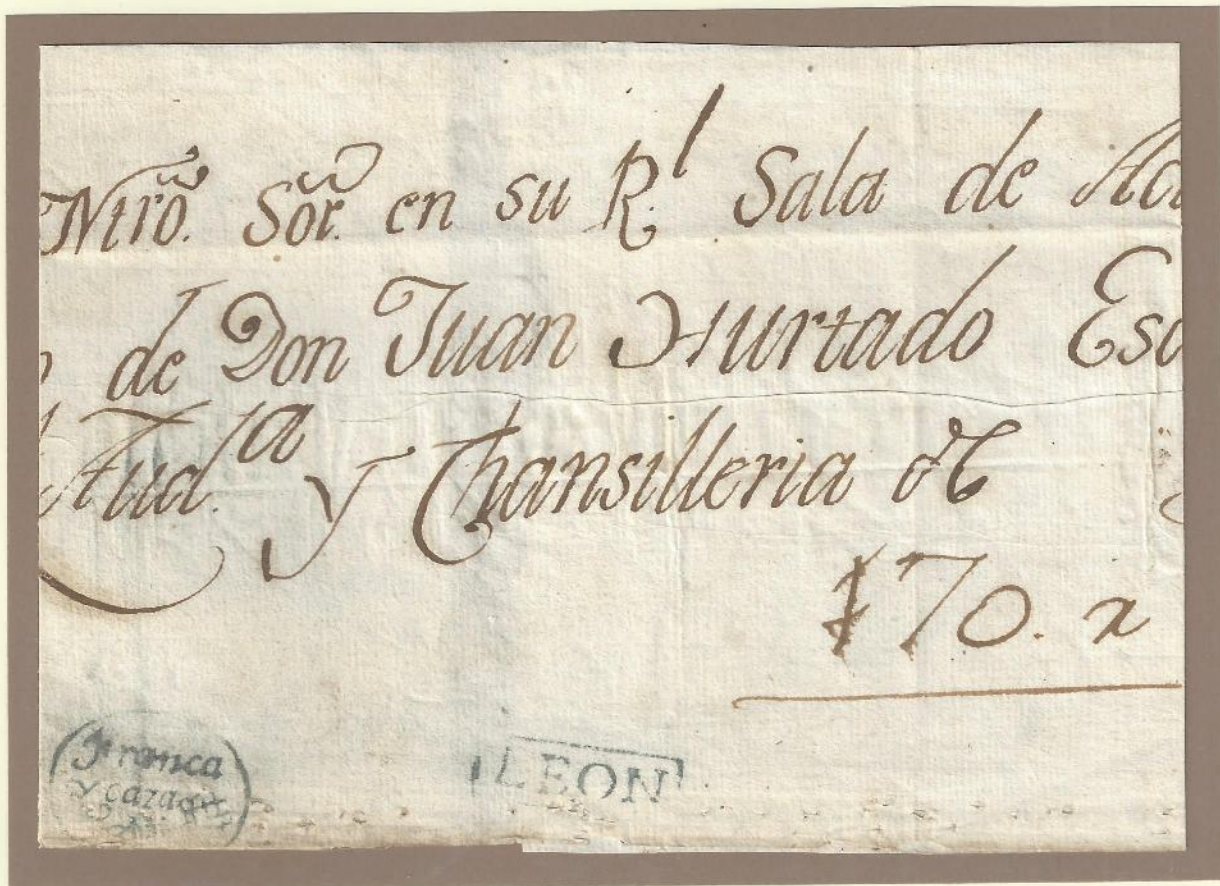 Ntro. Sor. en su Rl. Sala de
de Don Juan Hurtado
Auda. y Chansilleria de
170.
Franca
LEON